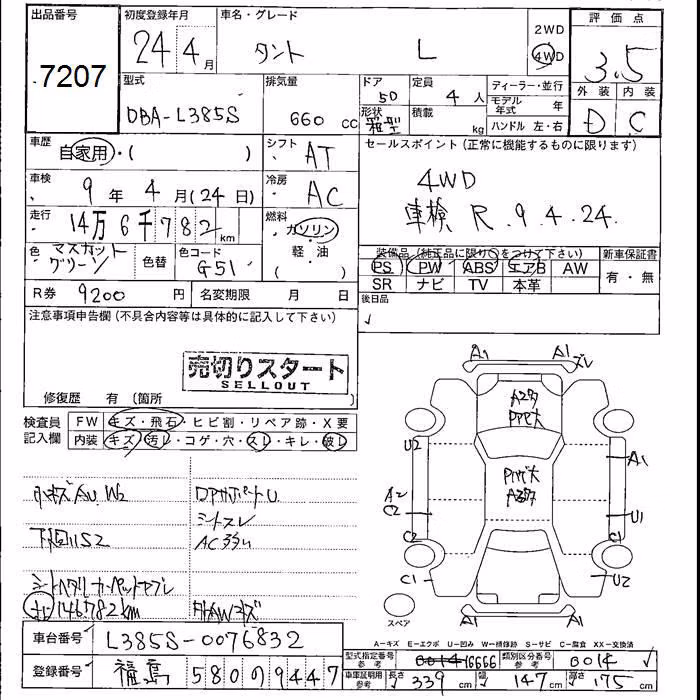 出品番号 7207
初度登録年月 24 4月
車名・グレード タント L
2WD 4WD
評価点 3.5
外装 D 内装 C
型式 DBA-L385S
排気量 660 cc
ドア 5D
形状 箱型
定員 4 人
積載 kg
ディーラー・並行
モデル年式 年
ハンドル 左・右
車歴 自家用・( )
シフト AT
車検 9年 4月(24日)
冷房 AC
走行 14万6千782km
燃料 ガソリン・軽・油 ( )
色 マスカットグリーン 色替
色コード G51
R券 9200円 名変期限 月 日
セールスポイント (正常に機能するものに限ります)
4WD
車検 R.9.4.24.
装備品 (純正品に限り○をつけて下さい)
PS PW ABS エアB AW
SR ナビ TV 本革
新車保証書
有・無
後日品
注意事項申告欄 (不具合内容等は具体的に記入して下さい)
売切りスタート
SELLOUT
修復歴 有 (箇所 )
検査員記入欄
FW キズ・飛石・ヒビ割・リペア跡・X要
内装 キズ・汚し・コゲ・穴・スレ・キレ・破し
小キズAU.W2
下回りS2
シートスレ
146782km
A1 A1 ズレ
U2 A1
A2 C2 U1
C2
C1 C1 U2
A1 A1
スペア
A-キズ E-エクボ U-凹み W-補修跡 S-サビ C-腐食 XX-交換済
車台番号 L385S-0076832
登録番号 福島 580 0 9447
型式指定番号 参考 16666 類別区分番号 参考 0014
車庫証明用 参考 長さ 339cm 幅 147cm 高さ 175cm